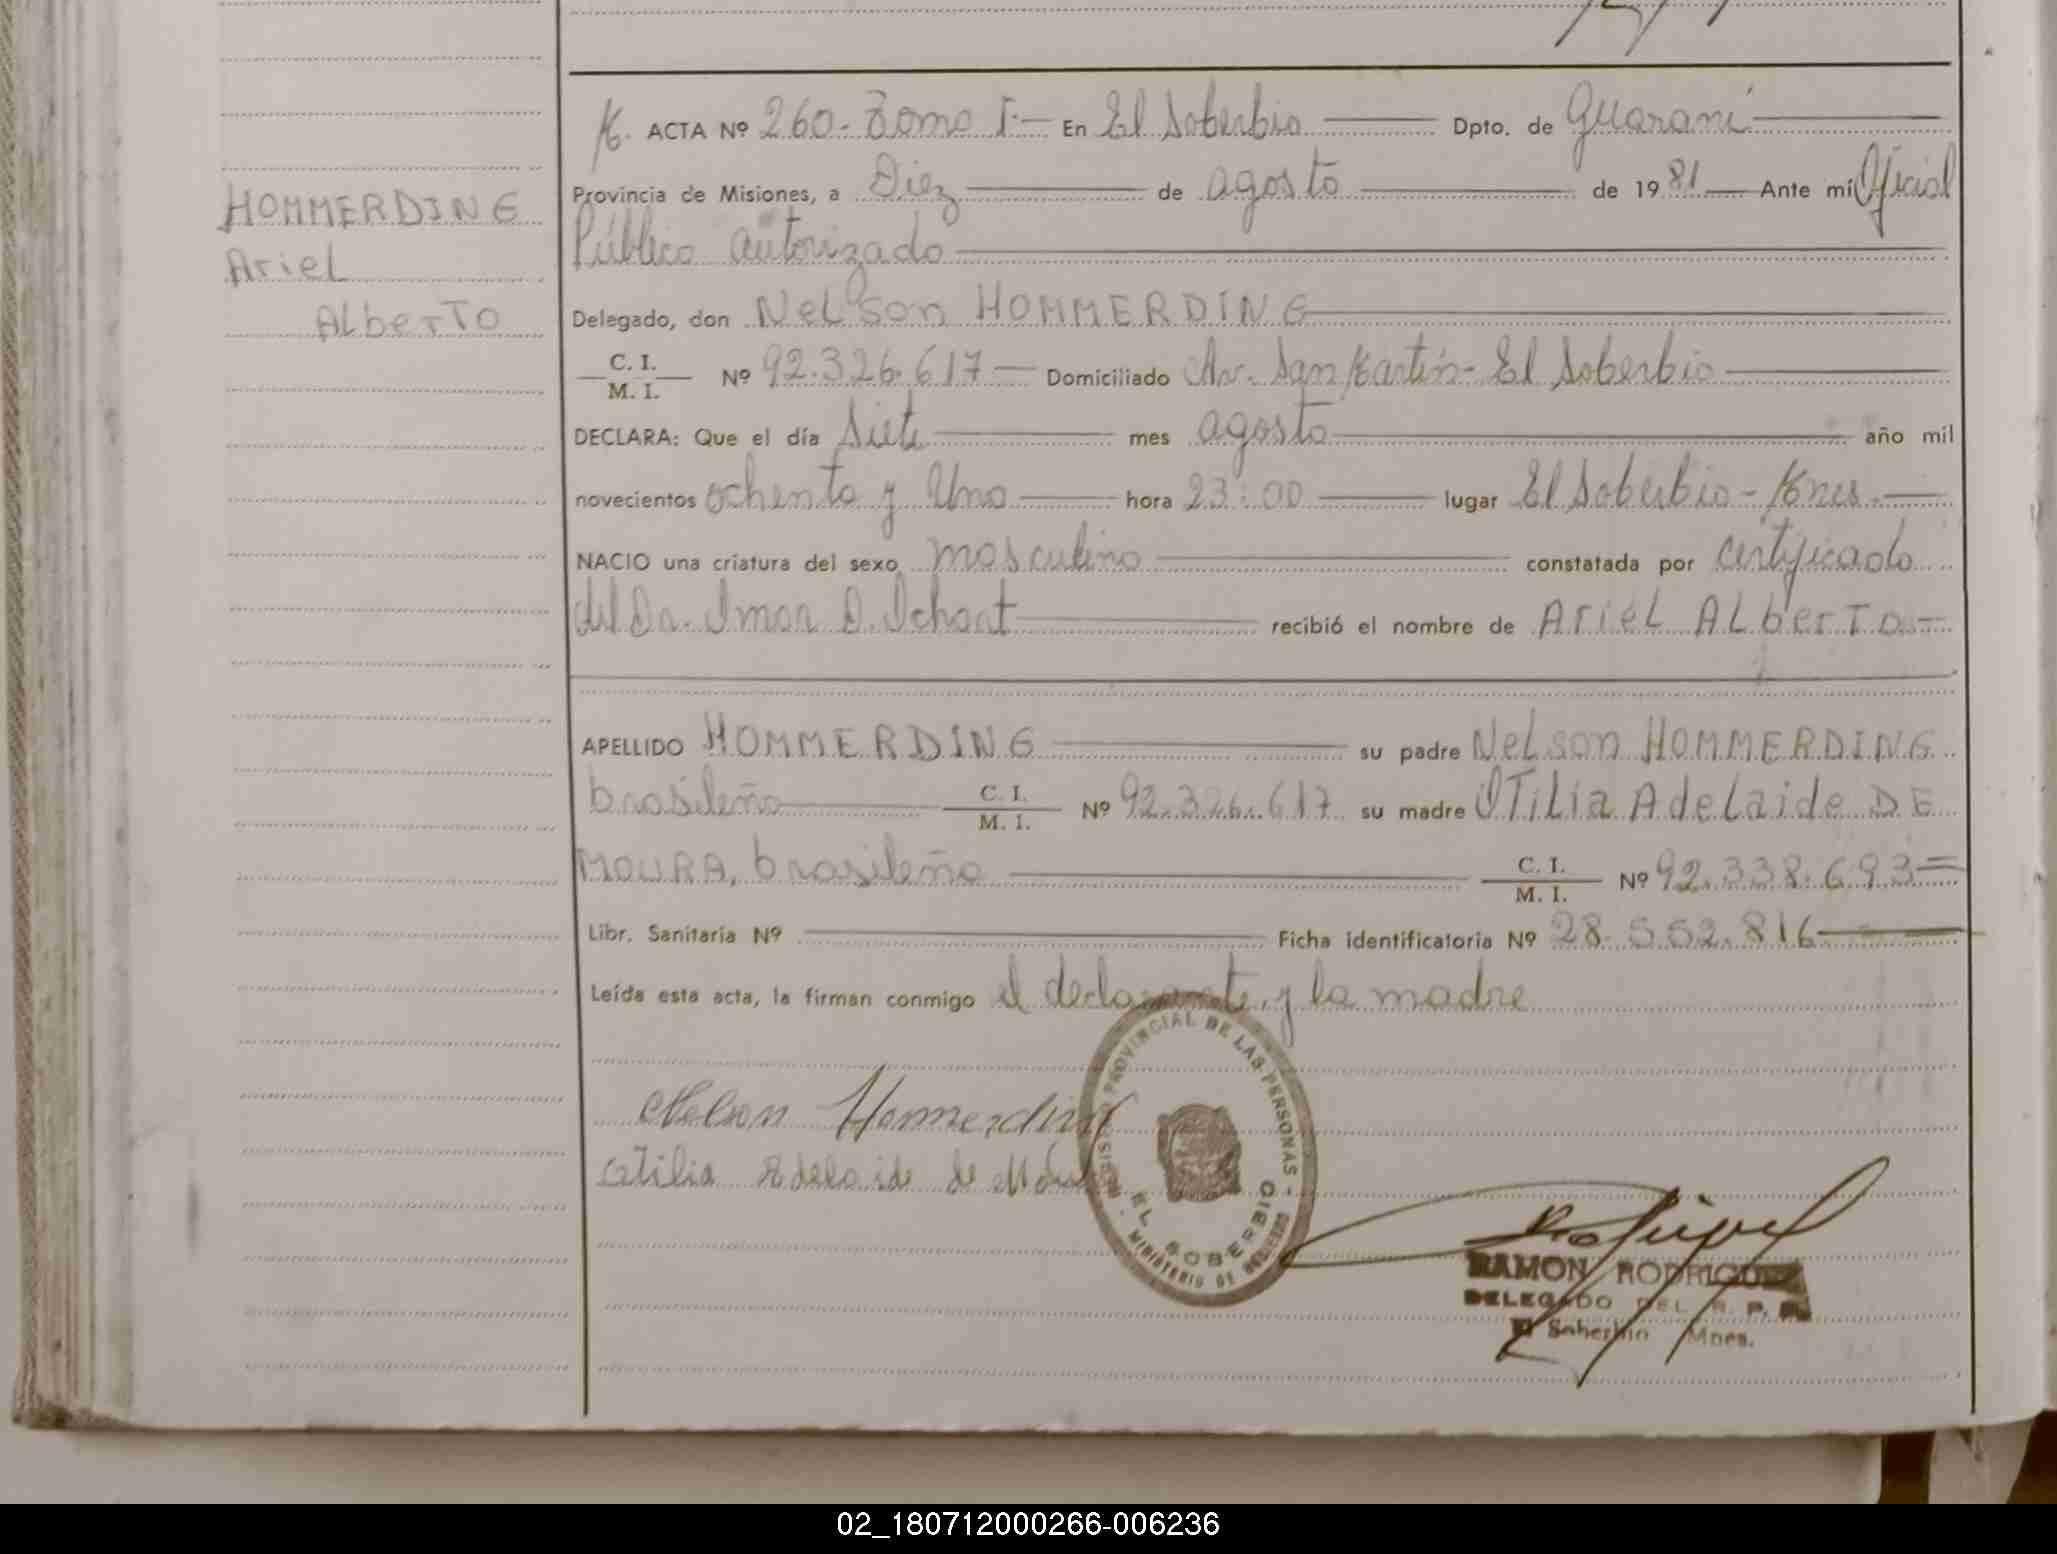 HOMMERDING
Ariel
Alberto
M. ACTA Nº 260-Tomo I- En El Soberbio Dpto. de Guaraní
Provincia de Misiones, a Diez de agosto de 1981 Ante mí Oficial
Público autorizado
Delegado, don Nelson HOMMERDING
C. I.
M. I. Nº 92.326.617 Domiciliado Av. San Martín- El Soberbio
DECLARA: Que el día siete mes agosto año mil
novecientos ochenta y Uno hora 23:00 lugar El Soberbio-Mnes.
NACIO una criatura del sexo masculino constatada por certificado
del Dr. Imar D. Schaat recibió el nombre de Ariel ALberTo
APELLIDO HOMMERDING su padre Nelson HOMMERDING
brasileño C. I.
M. I. Nº 92.326.617 su madre OTilia Adelaide DE
MOURA, brasileña C. I.
M. I. Nº 92.338.693
Libr. Sanitaria Nº Ficha identificatoria Nº 28.552.816
Leída esta acta, la firman conmigo el declarante, y la madre
Nelson Homerding
Otilia Adelaide de Moura
PROVINCIAL DE LAS PERSONAS - MINISTERIO DE GOBIERNO
EL SOBERBIO
RAMON RODRIGUEZ
DELEGADO DEL R. P. P.
El Soberbio Mnes.
02_180712000266-006236